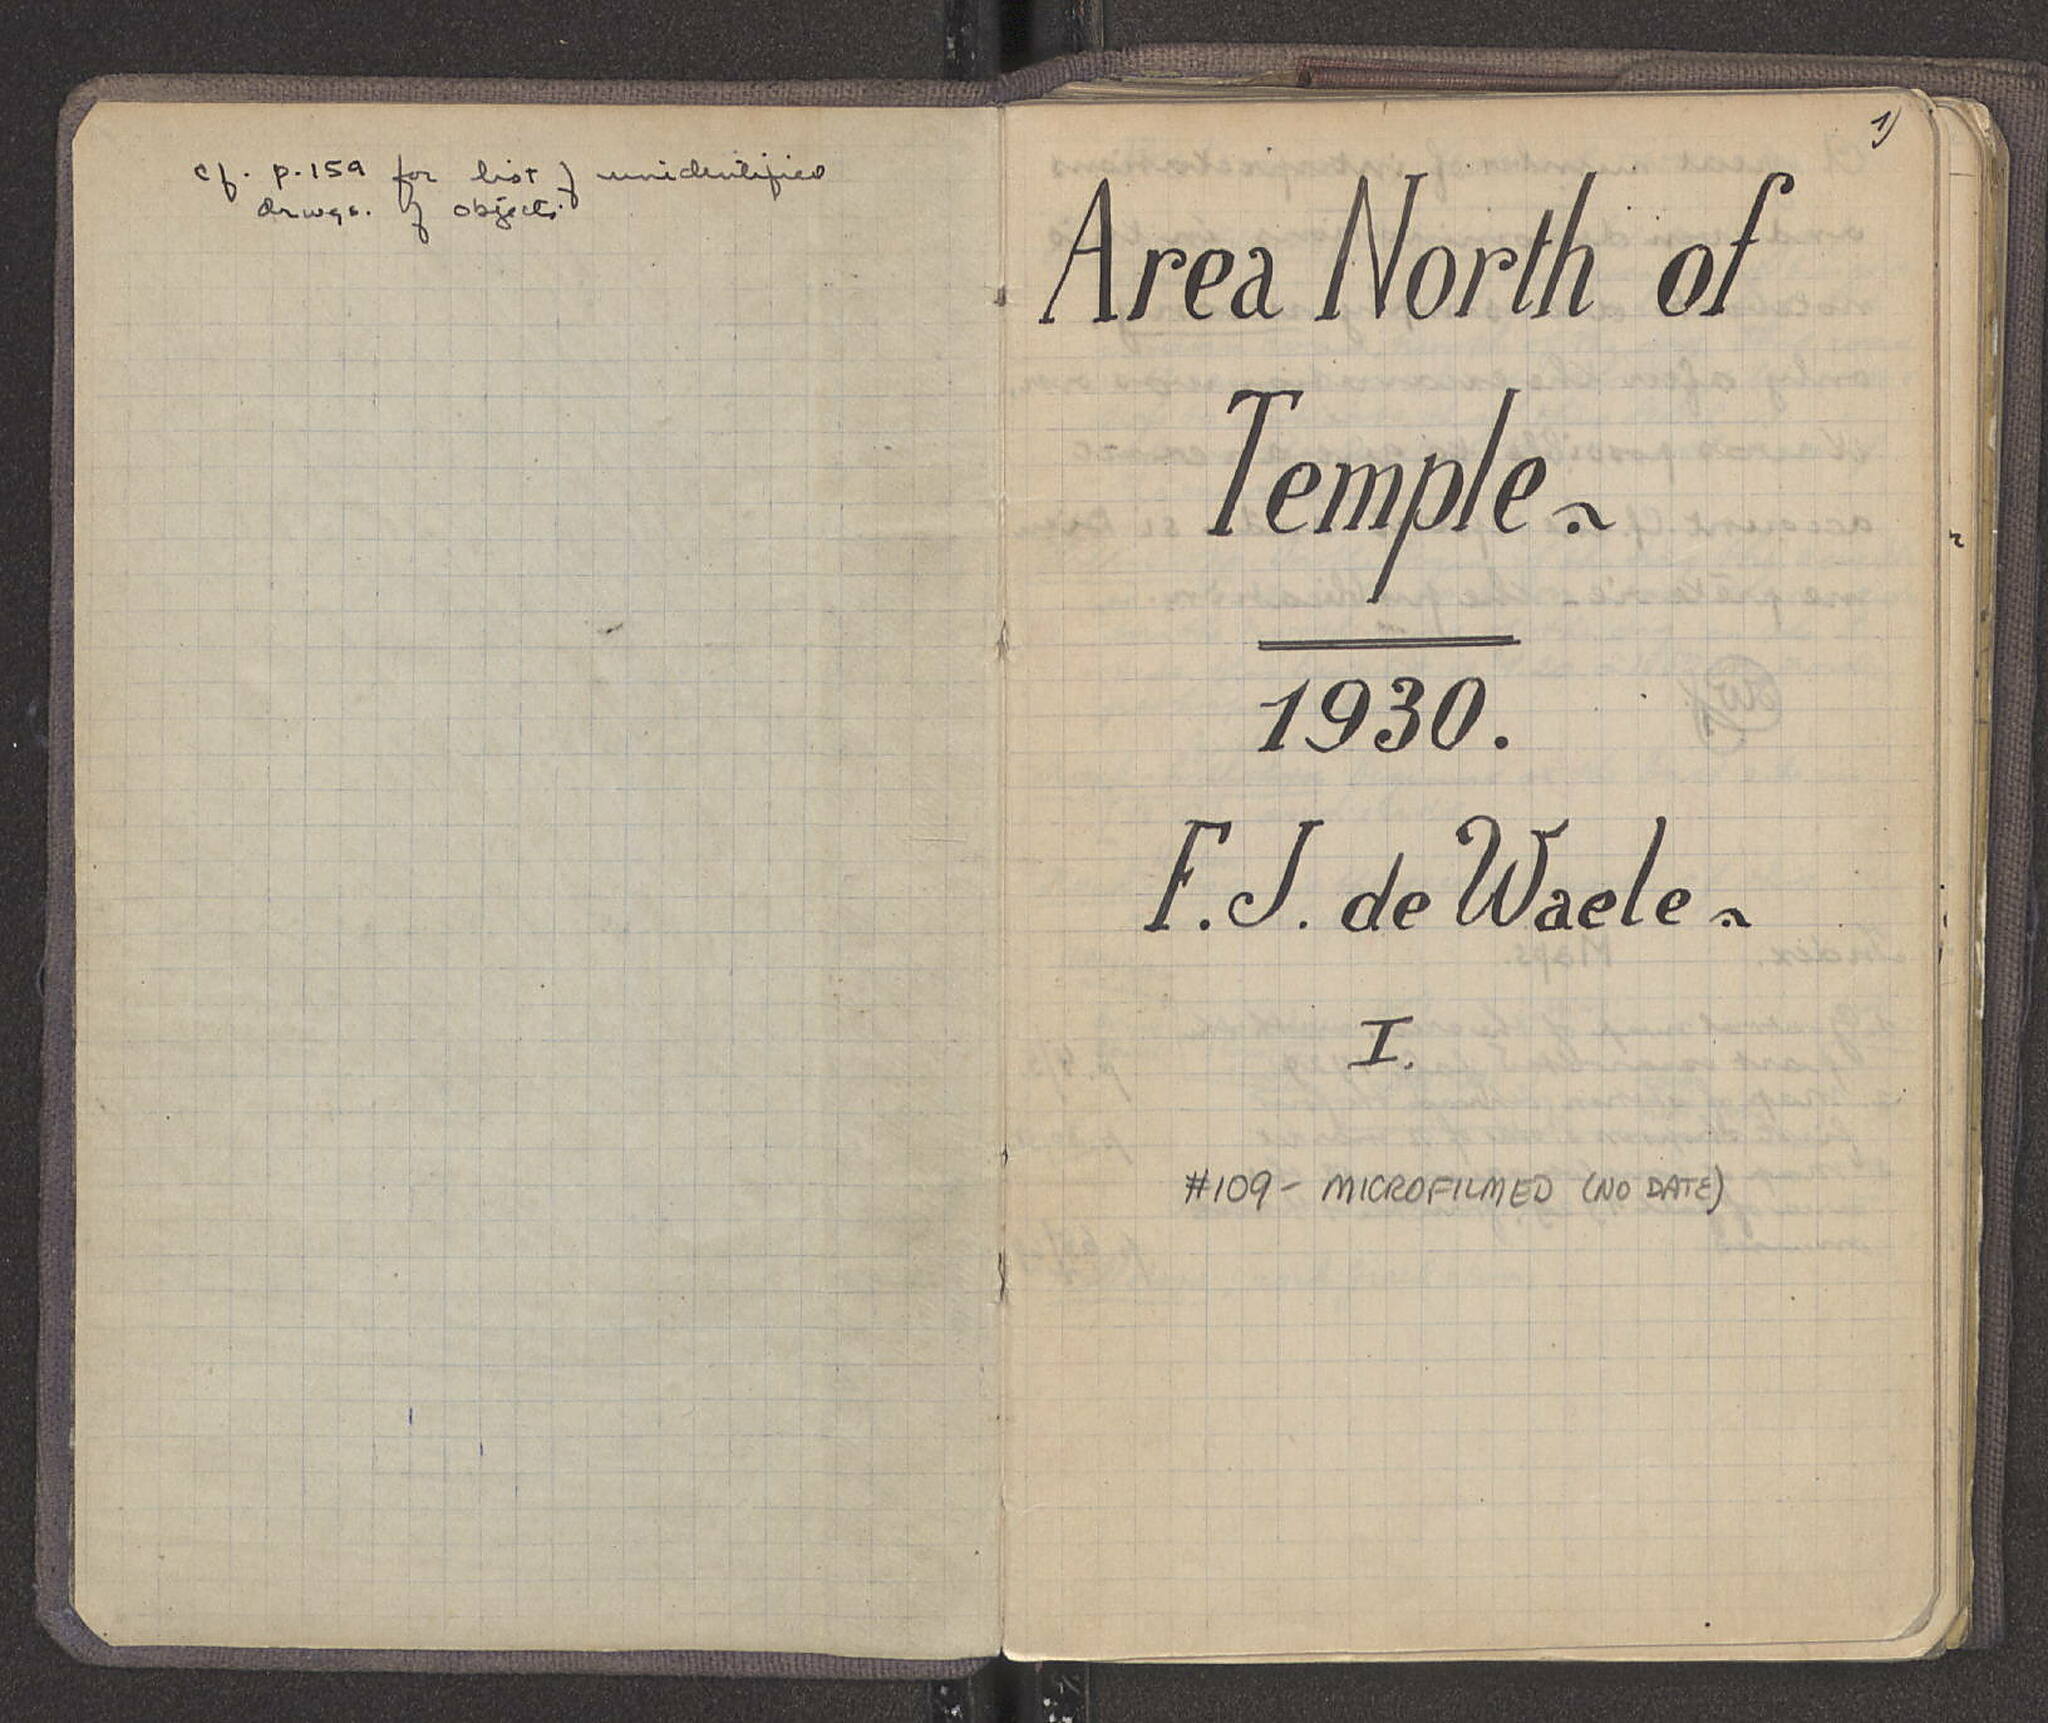 cf. p. 159 for list of unidentified
drwgs. of objects.
1)
Area North of
Temple.~
1930.
F. J. de Waele.~
I.
#109 - MICROFILMED (NO DATE)